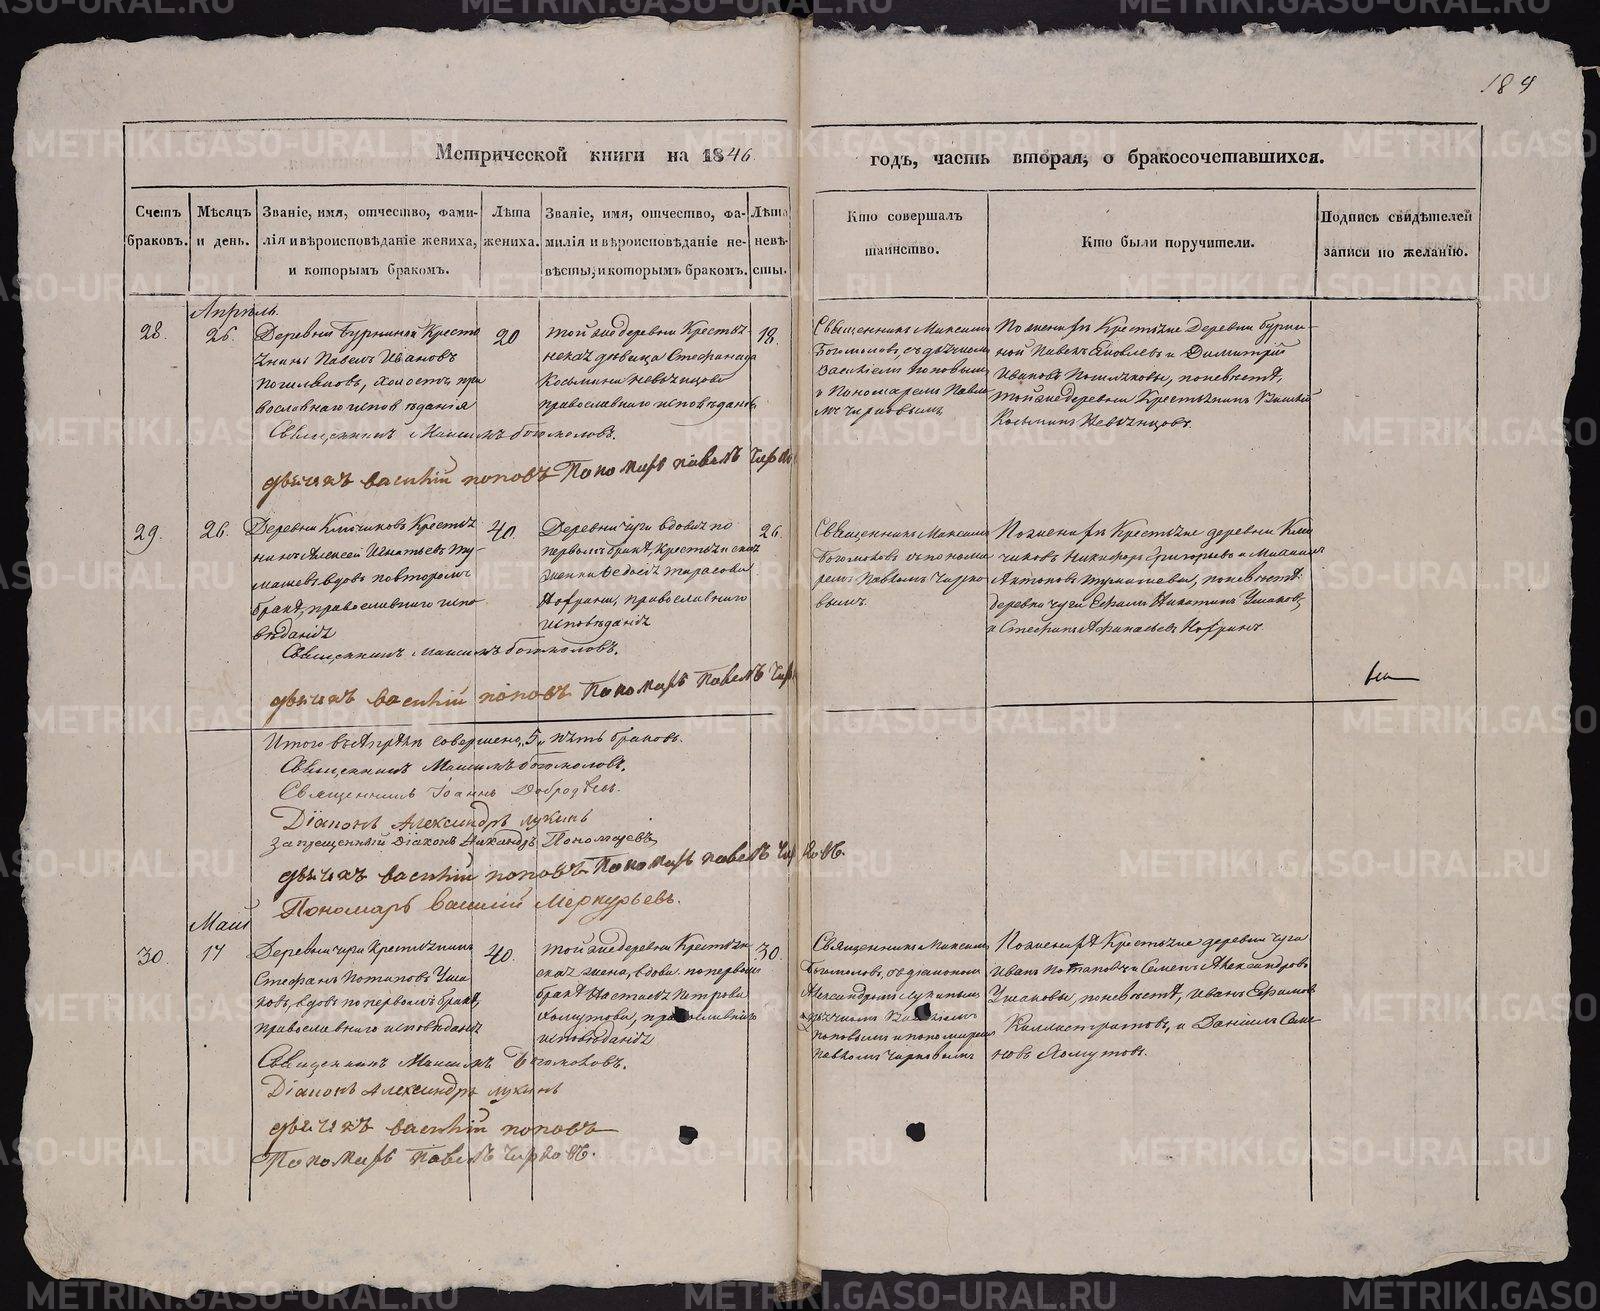 184
Метрической книги на 1846
годъ, часть вторая, о бракосочетавшихся.
Счетъ браковъ.
Мѣсяцъ и день.
Званіе, имя, отчество, фами-
лія и вѣроисповѣданіе жениха,
и которымъ бракомъ.
Лѣта
жениха.
Званіе, имя, отчество, фа-
милія и вѣроисповѣданіе не-
вѣсты, и которымъ бракомъ.
Лѣта
невѣ-
сты.
Кто совершалъ
таинство.
Кто были поручители.
Подпись свидѣтелей
записи по желанію.
Апрѣль.
28.
26.
Деревни Крестья
нинъ Павелъ Ивановъ
холостъ, пра
вославнаго исповѣданія
20
Той же деревни Крестья-
нская дѣвица Стефанида
Козьмина
православнаго исповѣданія
18.
Священникъ Максимъ
Богомоловъ, съ дьячкомъ
Василіемъ Поповымъ
и Пономаремъ Павло
мъ
По женихѣ Крестьяне Деревни
Павелъ Яковлевъ и Димитрій
Ивановъ по невѣстѣ,
той же деревни Крестьянинъ
Козьминъ
Священникъ Максимъ Богомоловъ.
дьячекъ василій поповъ Пономарь павелъ
29.
26.
Деревни Крестья
нинъ Алексей Игнатьевъ Ту-
машевъ вдовъ по второмъ
бракѣ, православнаго испо
вѣданія
40.
Деревни Чуги вдова по
первомъ бракѣ, Крестьянская
жена Ѳедосья Тарасова
православнаго
исповѣданія
26.
Священникъ Максимъ
Богомоловъ съ понома
ремъ Павломъ
вымъ.
По женихѣ Крестьяне деревни
Никифоръ Григорьевъ и Михаилъ
Антоновъ Тумашевы, по невѣстѣ
деревни Чуги Ефимъ Никитинъ Ушаковъ,
и Стефанъ Афанасьевъ
Священникъ Максимъ Богомоловъ.
дьячекъ василій поповъ Пономарь Павелъ
Итого въ Апрѣлѣ совершено „5„ пять браковъ.
Священникъ Максимъ Богомоловъ.
Священникъ Іоаннъ Добродѣевъ.
Діаконъ Александръ Лукинъ
Запрещенный Діаконъ Пономаревъ
дьячекъ василій поповъ Пономарь павелъ
Пономарь Василій Меркурьевъ.
Маій
30.
17
Деревни Чуги Крестьянинъ
Стефанъ Потаповъ Уша
ковъ, вдовъ по первомъ бракѣ,
православнаго исповѣданія
40.
Той же деревни Крестьян
ская жена, вдова по первомъ
бракѣ Настасья Петрова
Хомутова, православнаго
исповѣданія
30.
Священникъ Максимъ
Богомоловъ, съ діакономъ
Александромъ Лукинымъ
дьячкомъ Василіемъ
Поповымъ и пономаремъ
Павломъ
По женихѣ Крестьяне деревни Чуга
Иванъ Потаповъ и Семенъ Александровъ
Ушаковы, по невѣстѣ, Иванъ Ефимовъ
Каллистратовъ, и Даніилъ Семе
новъ Хомутовъ.
Священникъ Максимъ Богомоловъ.
Діаконъ Александръ Лукинъ
дьячекъ василій поповъ
Пономарь Павелъ
METRIKI.GASO-URAL.RU